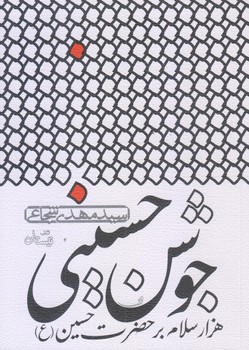 سید مهدی شجاعی
نیستان
جوشن حسینی
هزار سلام بر حضرت حسین (ع)